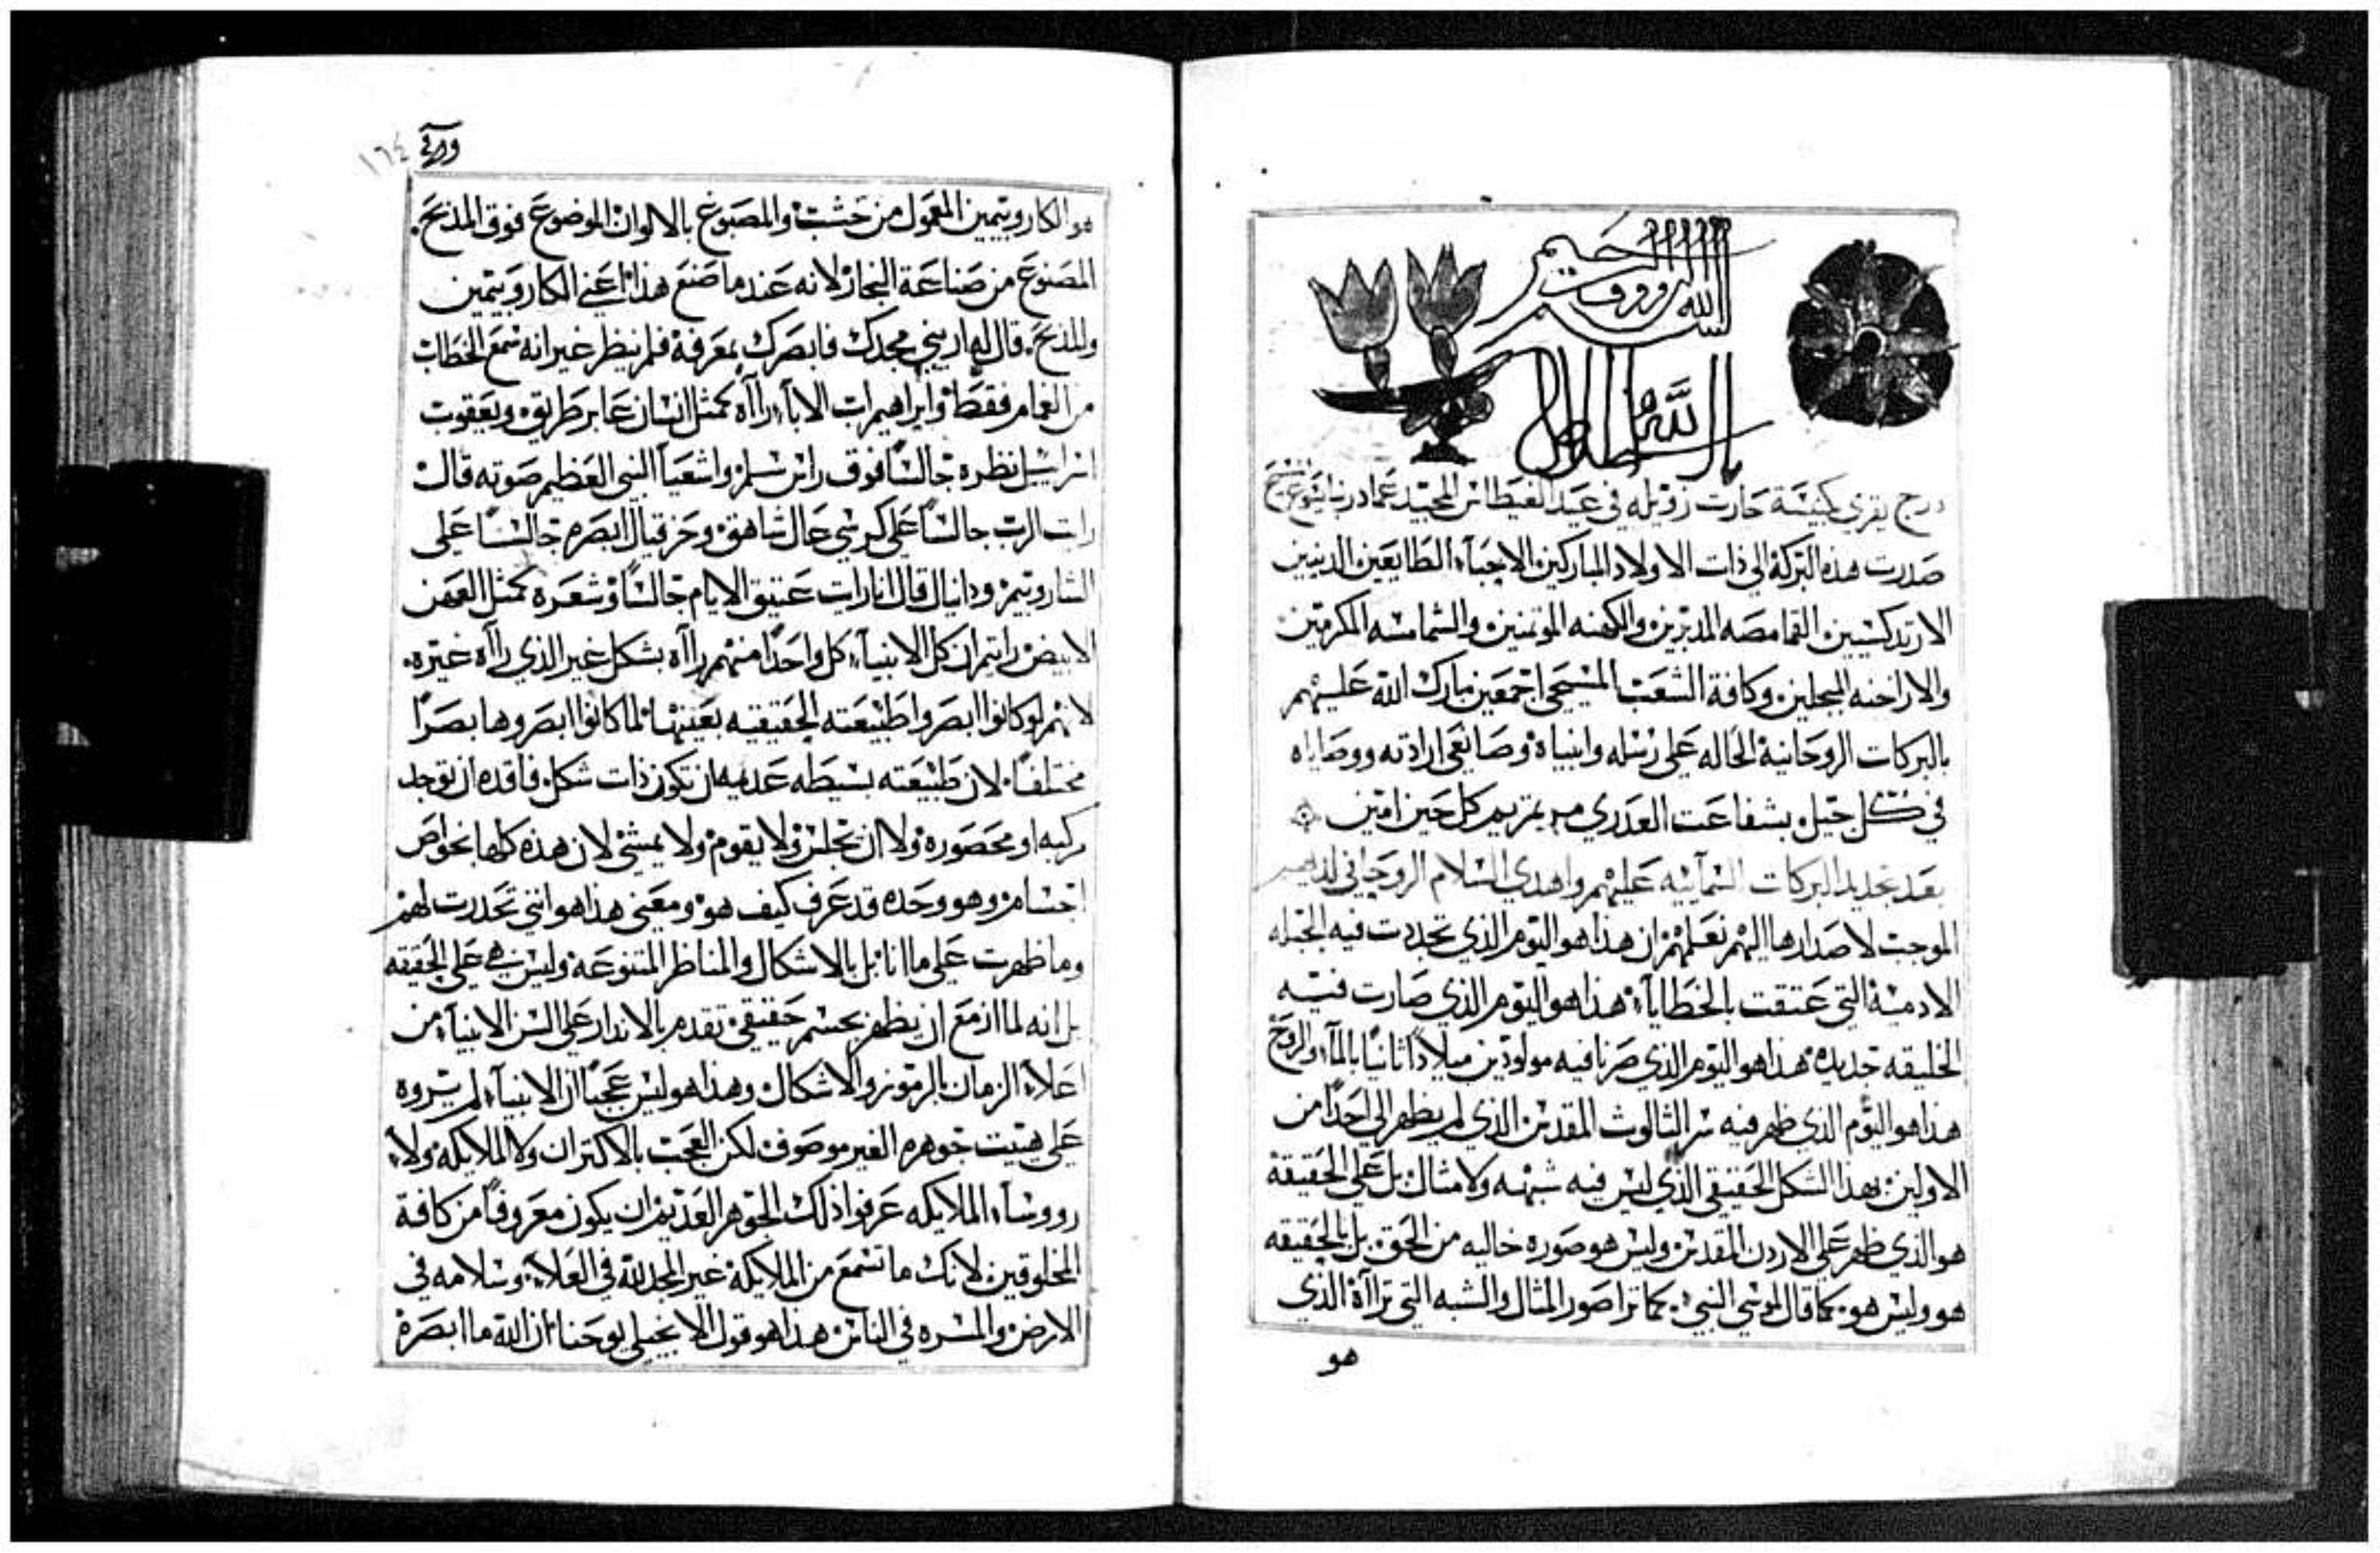 بسم الله الروووف الرحيم
درج يقري بكنيسة حارت زويله في عيد الغيطاس المجيد عماد ربنا يسوع المسيح
صدرت هذه البركة الي ذات الاولاد المباركين الاحباء الطايعين الدينين
الارتدكسيين القمامصه المدبرين والكهنه الموتمنين والشمامسه المكرمين
والاراخنه المبجلين وكافة الشعب المسيحي اجمعين بارك الله عليهم
بالبركات الروحانية الحاله علي رسله وانبياه وصانعي ارادته ووصاياه
في كل جيل بشفاعت العدري مرتمريم كل حين امين
بعد تجديد البركات السمآئيه عليهم واهدي السلام الروحاني لديهم
الموجب لاصدارها اليهم نعلمهم ان هذا هو اليوم الذي تجددت فيه الجبله
الادمية التي عتقت بالخطايا هذا هو اليوم الذي صارت فيه
الخليقه جديده هذا هو اليوم الذي صرنا فيه مولودين ميلاداً ثانياً بالمآء والروح
هذا هو اليوم الذي ظهر فيه سر الثالوث المقدس الذي لم يظهر الي احداً من
الاولين بهذا الشكل الحقيقي الذي ليس فيه شبهه ولا مثال بل علي الحقيقة
هو الذي ظهر علي الاردن المقدس وليس هو صوره خاليه من الحق بل بالحقيقه
هو وليس هو كما قال لموسي النبي كما ترا صور المثال والشبه التي تراآه الذي
هو
١٦٤
هو الكاروبيمين المعمول من خشب والمصبوغ بالالوان الموضوع فوق المذبح
المصنوع من صناعة النجار لانه عندما صنع هذا اعني الكاروبيمين
والمذبح قال له اريني مجدك فابصرك بمعرفة فلم ينظر غير انه سمع الخطاب
من الغمام فقط وابراهيم اب الاباء راآه كمثل انسان عابر طريق ويعقوب
اسراييل نظره جالساً فوق راس سلم واشعيا النبي العظيم صوته قال
رايت الرب جالساً علي كرسي عال شاهق وحزقيال ابصره جالساً علي
الشاروبيم ودانيال قال انا رايت عتيق الايام جالساً وشعره كمثل العهن
الابيض رايتم ان كل الانبياء كل واحداً منهم راآه بشكل غير الذي راآه غيره
لانهم لو كانوا ابصروا طبيعته الحقيقيه بعينها لما كانوا ابصروها بصراً
مختلفاً لان طبيعته بسيطه عديمه ان تكون ذات شكل فاقده ان توجد
مركبه او محصوره ولا ان تجلس ولا يقوم ولا يمشي لان هذه كلها بخواص
اجسام وهو وحده قد عرف كيف هو ومعني هذا هو انني تحدرت لهم
وما ظهرت علي ما انا بل بالاشكال والمناظر المتنوعة وليس هي علي الحقيقه
بل انه لما ازمع ان يظهر بجسم حقيقي تقدم بالاندار علي السن الانبياء من
اعلاء الزمان بالرموز والاشكال وهذا هو ليس عجباً ان الانبياء لم يروه
علي هيئت جوهره الغير موصوف لكن العجب بالاكتر ان ولا الملايكه ولا
رووساء الملايكه عرفوا ذلك الجوهر العديم ان يكون معروفاً من كافة
المخلوقين لانك ما تسمع من الملايكة غير المجد لله في العلا وسلامه في
الارض والمسره في الناس هذا هو قول الانجيلي يوحنا ان الله ما ابصره